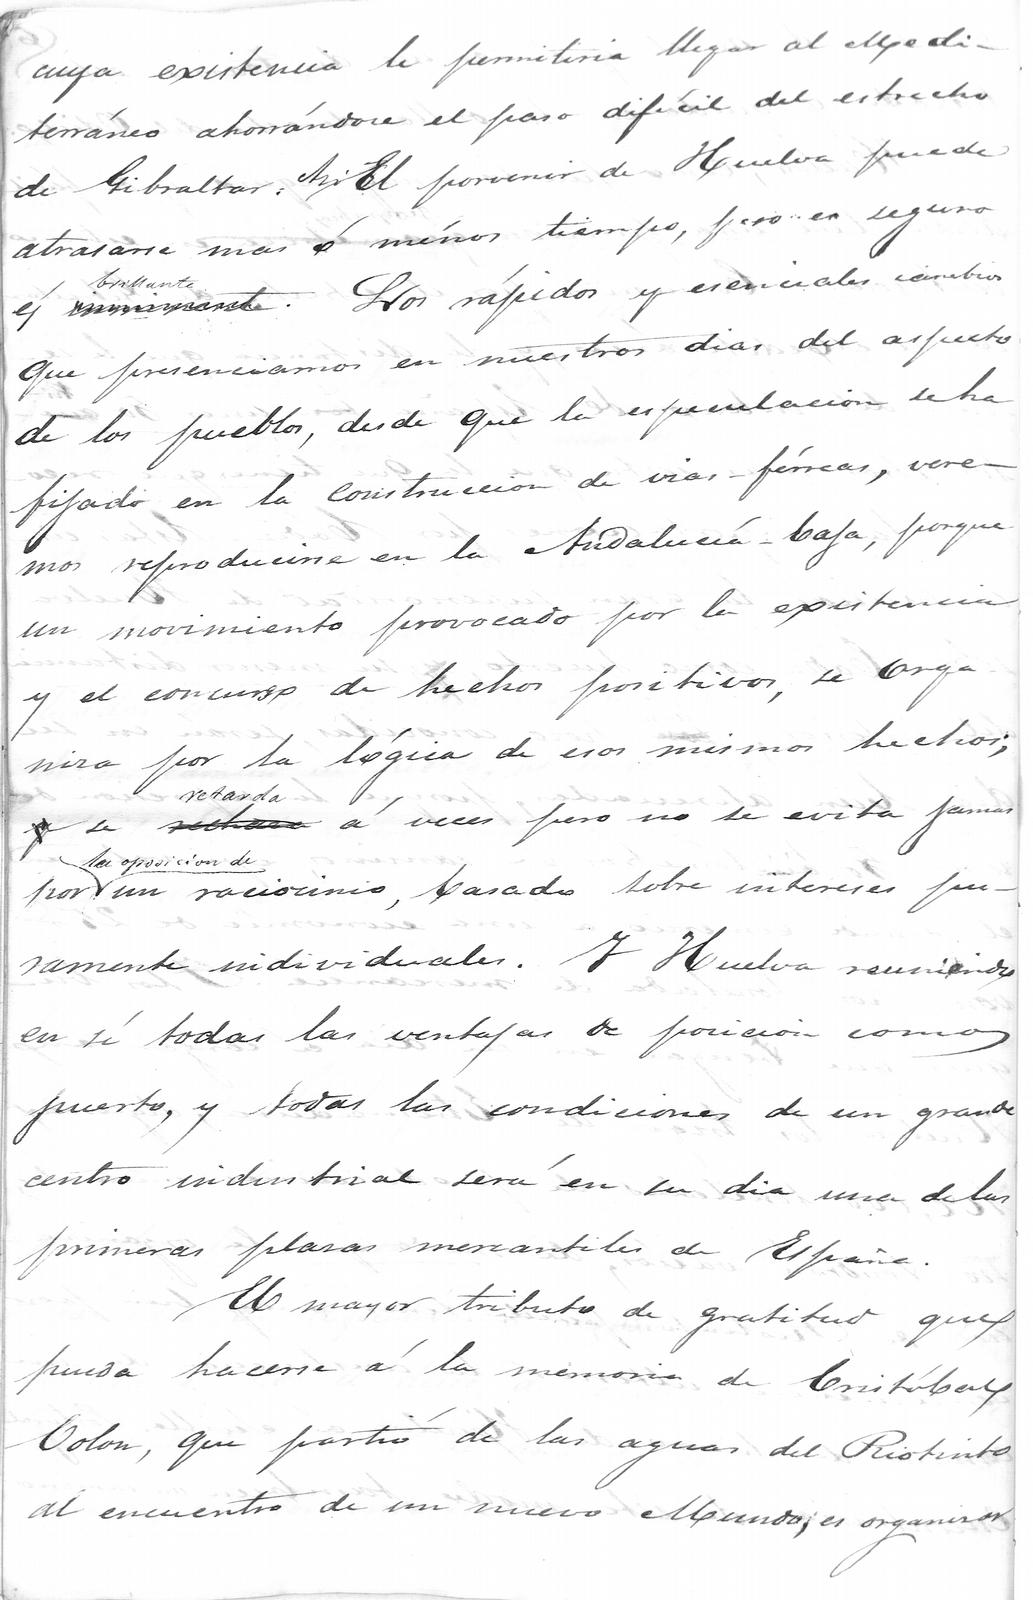 cuya existencia le permitiria llegar al Medi-
terráneo ahorrándose el paso difícil del estrecho
de Gibraltar. El porvenir de Huelva puede
atrasarse mas ó ménos tiempo, pero en seguro
brillante
és inminente. Los rápidos y esenciales cambios
que presenciamos en nuestros dias del aspecto
de los pueblos, desde que la especulacion se ha
fijado en la construccion de vias-férreas, vere-
mos reproducirse en la Andalucía-baja, porque
un movimiento provocado por la existencia
y el concurso de hechos positivos, se orga-
niza por la lógica de esos mismos hechos;
retarda
y se rechaza á veces pero no se evita jamas
la oposicion de
por un raciocinio, basado sobre intereses pu-
ramente individuales. Y Huelva reuniendo
en sí todas las ventajas de posicion como
puerto, y todas las condiciones de un grande
centro industrial será en su dia una de las
primeras plazas mercantiles de España.
El mayor tributo de gratitud que
pueda hacerse á la memoria de Cristóbal
Colon, que partió de las aguas del Riotinto
al encuentro de un nuevo Mundo, es organizar